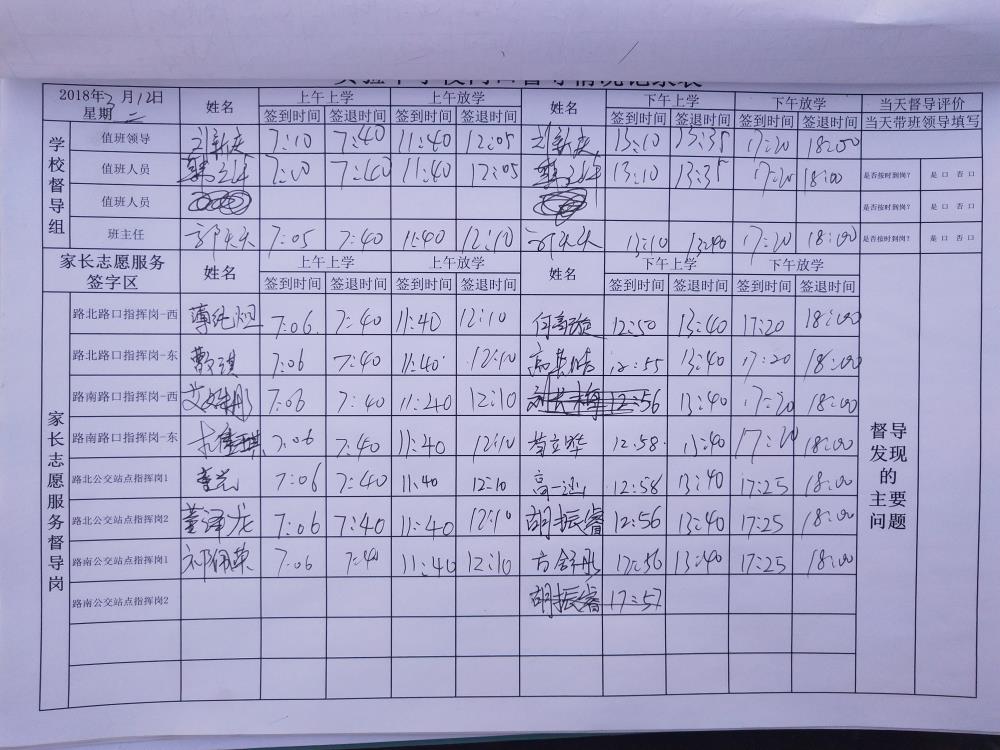 2018年3月12日
星期二
姓名 上午上学 上午放学 姓名 下午上学 下午放学 当天督导评价
签到时间 签退时间 签到时间 签退时间 签到时间 签退时间 签到时间 签退时间 当天带班领导填写
学校督导组
值班领导 7:10 7:40 11:40 12:05 13:10 13:35 17:20 18:00
值班人员 7:00 7:40 11:40 12:05 13:10 13:35 17:20 18:00 是否按时到岗? 是口 否口
值班人员 是否按时到岗? 是口 否口
班主任 7:05 7:40 11:40 12:10 13:10 13:40 17:20 18:00 是否按时到岗? 是口 否口
家长志愿服务签字区 姓名 上午上学 上午放学 姓名 下午上学 下午放学
签到时间 签退时间 签到时间 签退时间 签到时间 签退时间 签到时间 签退时间
家长志愿服务督导岗
路北路口指挥岗-西 7:06 7:40 11:40 12:10 12:50 13:40 17:20 18:00
路北路口指挥岗-东 7:06 7:40 11:40 12:10 12:55 13:40 17:20 18:00
路南路口指挥岗-西 7:06 7:40 11:40 12:10 12:56 13:40 17:20 18:00
路南路口指挥岗-东 7:06 7:40 11:40 12:10 苟立华 12:58 13:40 17:20 18:00
路北公交站点指挥岗1 7:06 7:40 11:40 12:10 12:58 13:40 17:25 18:00
路北公交站点指挥岗2 董泽龙 7:06 7:40 11:40 12:10 胡振睿 12:56 13:40 17:25 18:00
路南公交站点指挥岗1 7:06 7:40 11:40 12:10 12:56 13:40 17:25 18:00
路南公交站点指挥岗2 胡振睿 17:57
督导发现的主要问题